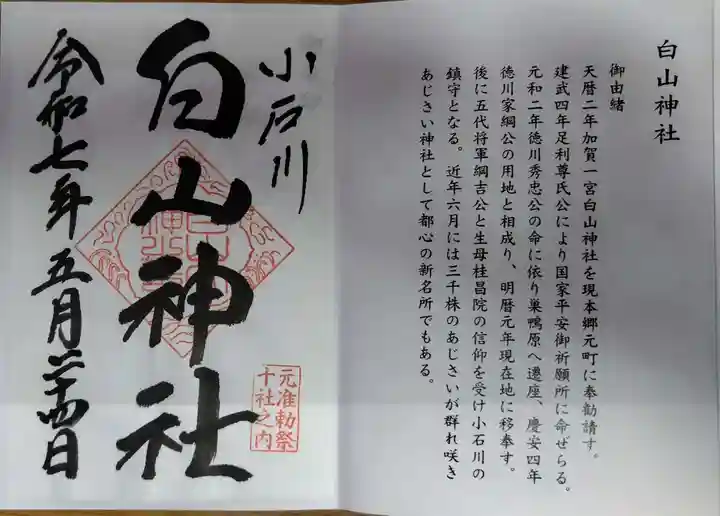 白山神社
御由緒
天暦二年加賀一宮白山神社を現本郷元町に奉勧請す。
建武四年足利尊氏公により国家平安御祈願所に命ぜらる。
元和二年徳川秀忠公の命に依り巣鴨原へ遷座、慶安四年
徳川家綱公の用地と相成り、明暦元年現在地に移奉す。
後に五代将軍綱吉公と生母桂昌院の信仰を受け小石川の
鎮守となる。近年六月には三千株のあじさいが群れ咲き
あじさい神社として都心の新名所でもある。
小石川
白山神社
元准勅祭
十社之内
令和七年五月廿四日